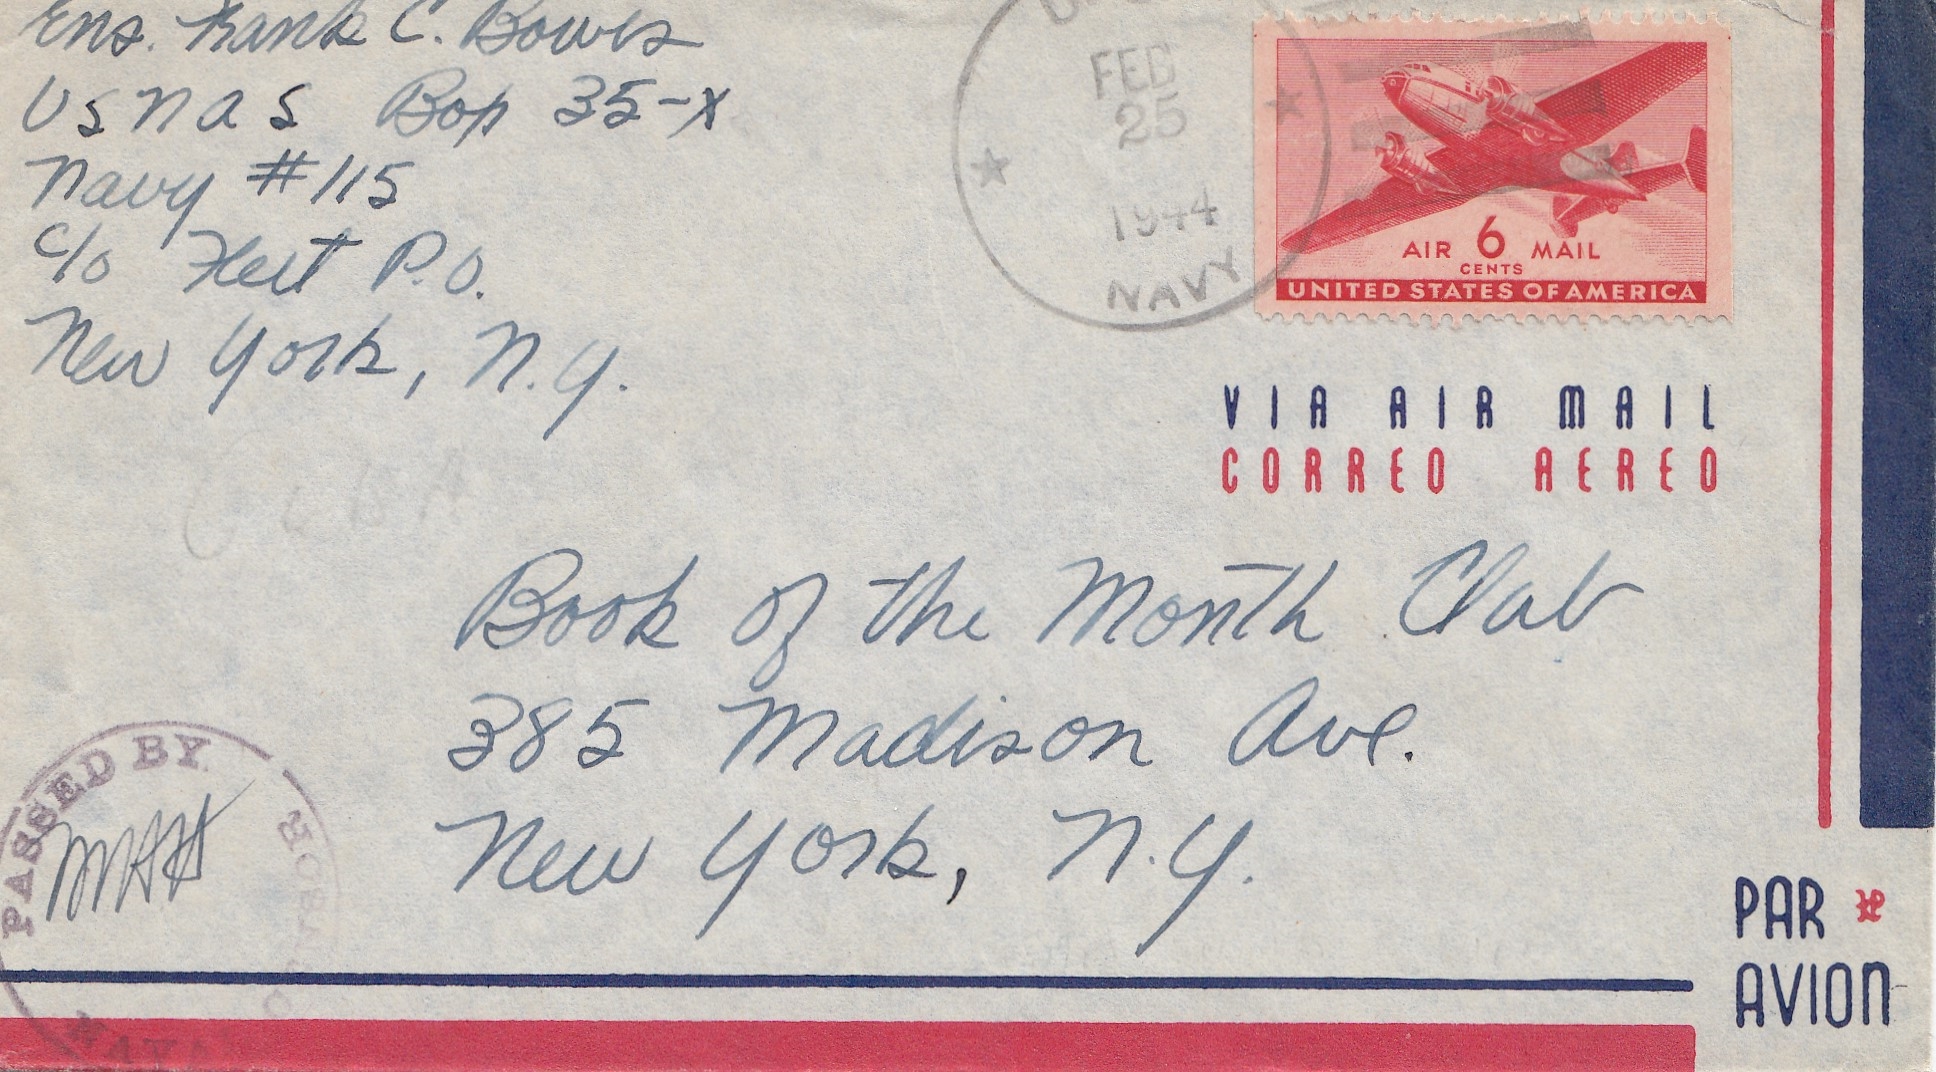 Ens. Frank C. Bowes
USNAS Box 35-X
Navy #115
c/o Fleet P.O.
New York, N.Y.
CUBA
FEB
25
1944
NAVY
AIR 6 MAIL
CENTS
UNITED STATES OF AMERICA
VIA AIR MAIL
CORREO AEREO
Book of the Month Club
385 Madison Ave.
New York, N.Y.
PASSED BY
NAVAL CENSOR
PAR
AVION